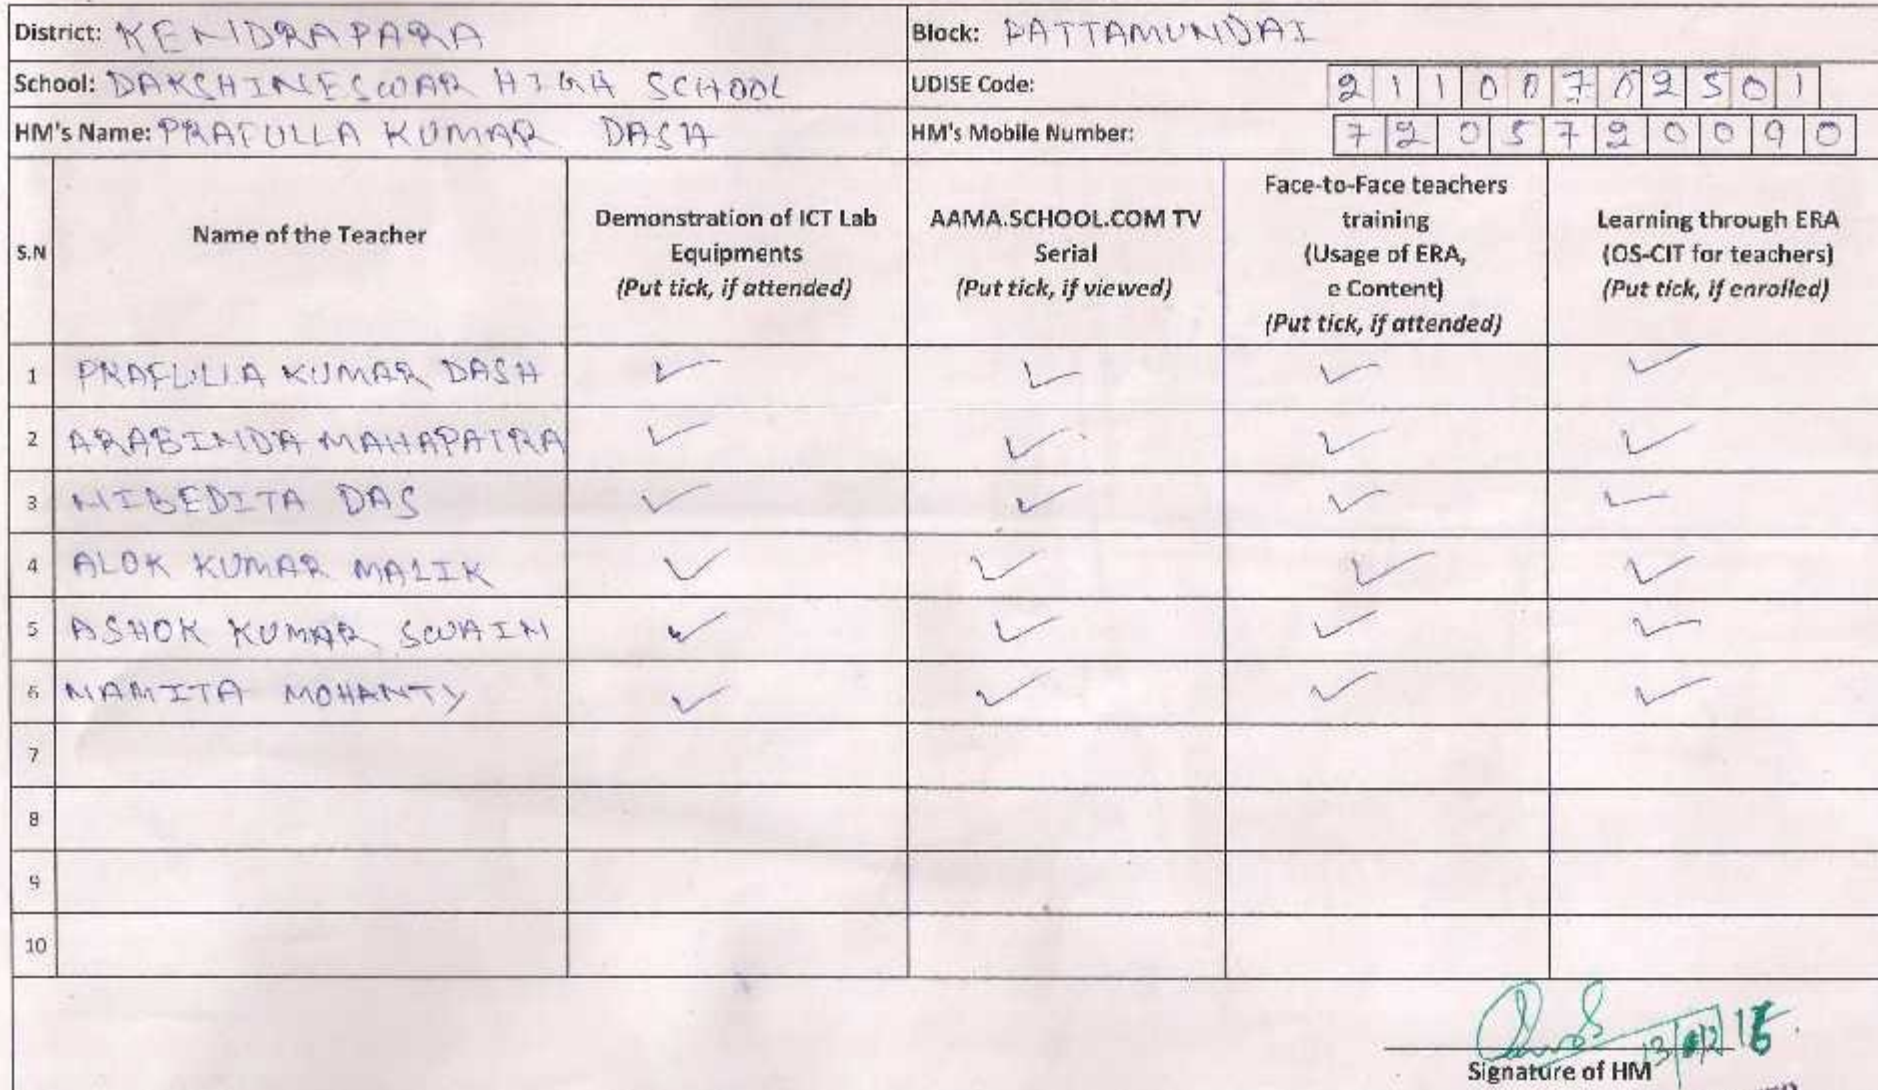 District: KENDRAPARA Block: PATTAMUNDAI
School: DAKSHINESWAR HIGH SCHOOL UDISE Code: 2 1 1 0 0 7 0 2 5 0 1
HM's Name: PRAFULLA KUMAR DASH HM's Mobile Number: 7 2 0 5 7 2 0 0 9 0
S.N Name of the Teacher Demonstration of ICT Lab Equipments (Put tick, if attended) AAMA.SCHOOL.COM TV Serial (Put tick, if viewed) Face-to-Face teachers training (Usage of ERA, e Content) (Put tick, if attended) Learning through ERA (OS-CIT for teachers) (Put tick, if enrolled)
1 PRAFULLA KUMAR DASH ✓ ✓ ✓ ✓
2 ARABINDA MAHAPATRA ✓ ✓ ✓ ✓
3 NIBEDITA DAS ✓ ✓ ✓ ✓
4 ALOK KUMAR MALIK ✓ ✓ ✓ ✓
5 ASHOK KUMAR SWAIN ✓ ✓ ✓ ✓
6 MAMITA MOHANTY ✓ ✓ ✓ ✓
7
8
9
10
Signature of HM